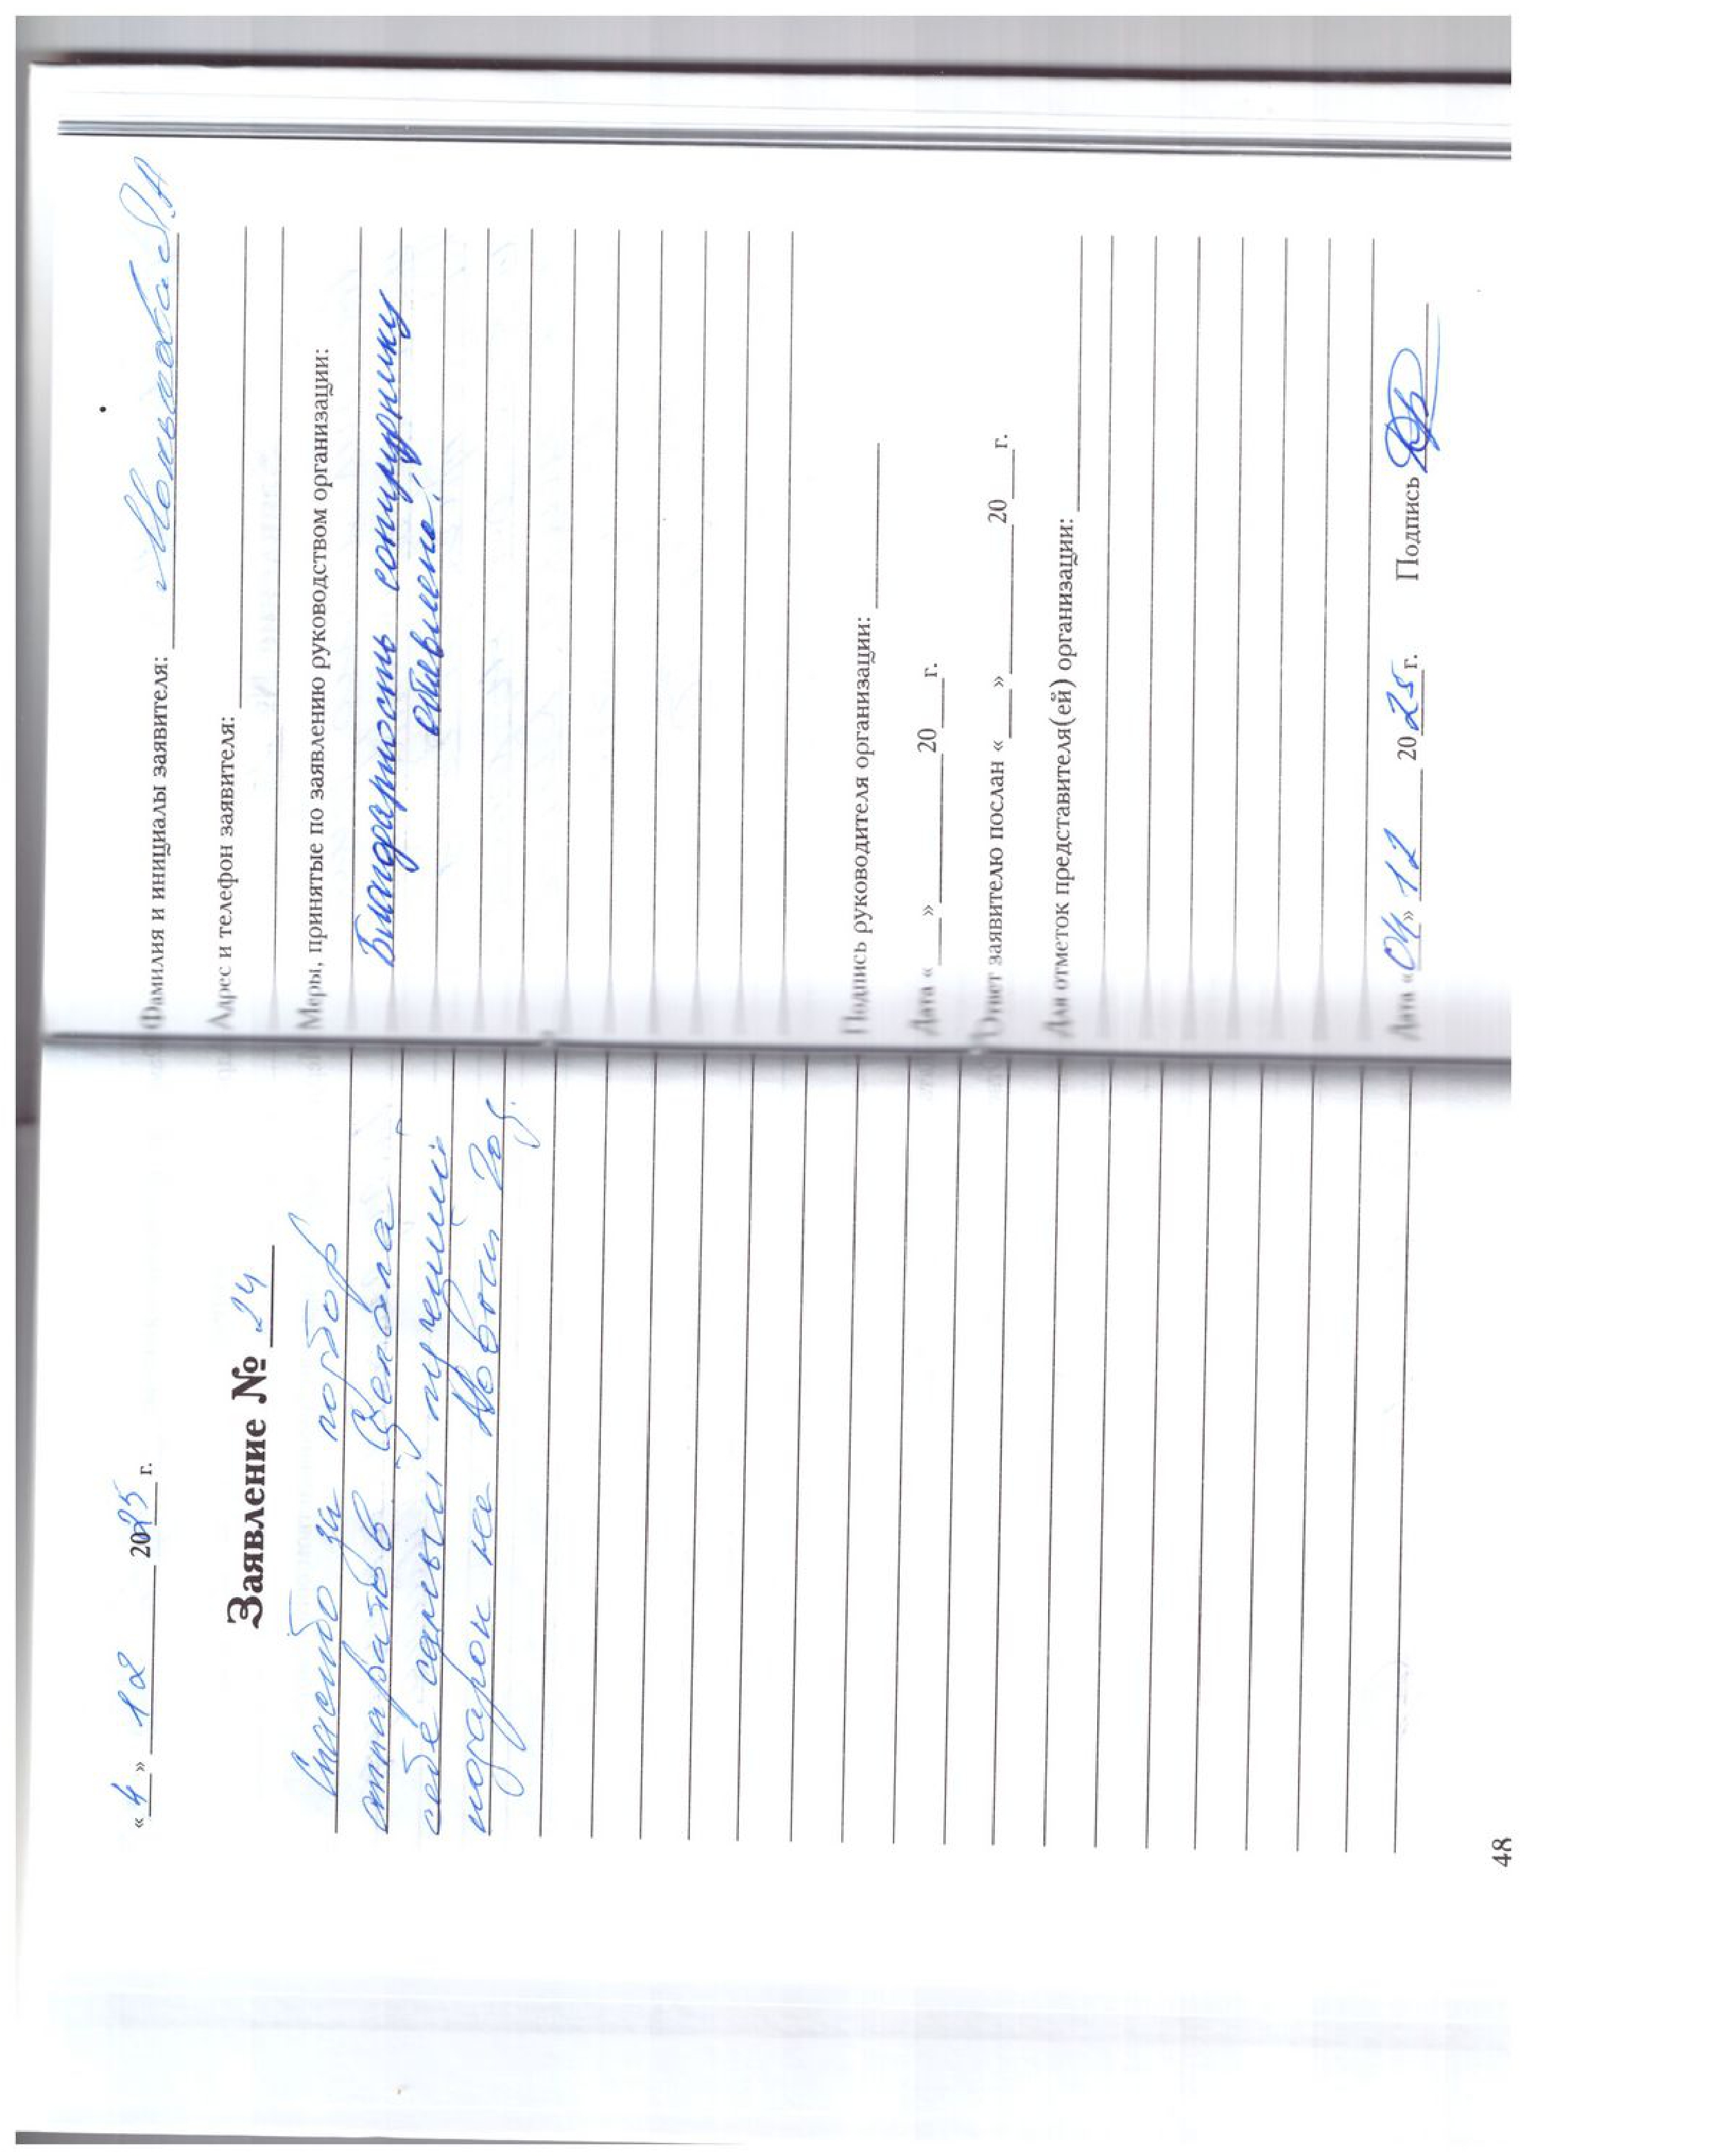 « 4 » 12 2025 г.
Заявление № 24
Спасибо за подбор
аппаратов
себе самый лучший
подарок на Новый Год.
48
Фамилия и инициалы заявителя:
Адрес и телефон заявителя:
Меры, принятые по заявлению руководством организации:
Благодарность сотруднику
объявлена!
Подпись руководителя организации:
Дата « » 20 г.
Ответ заявителю послан « » 20 г.
Для отметок представителя(ей) организации:
Дата «04» 12 2025 г. Подпись